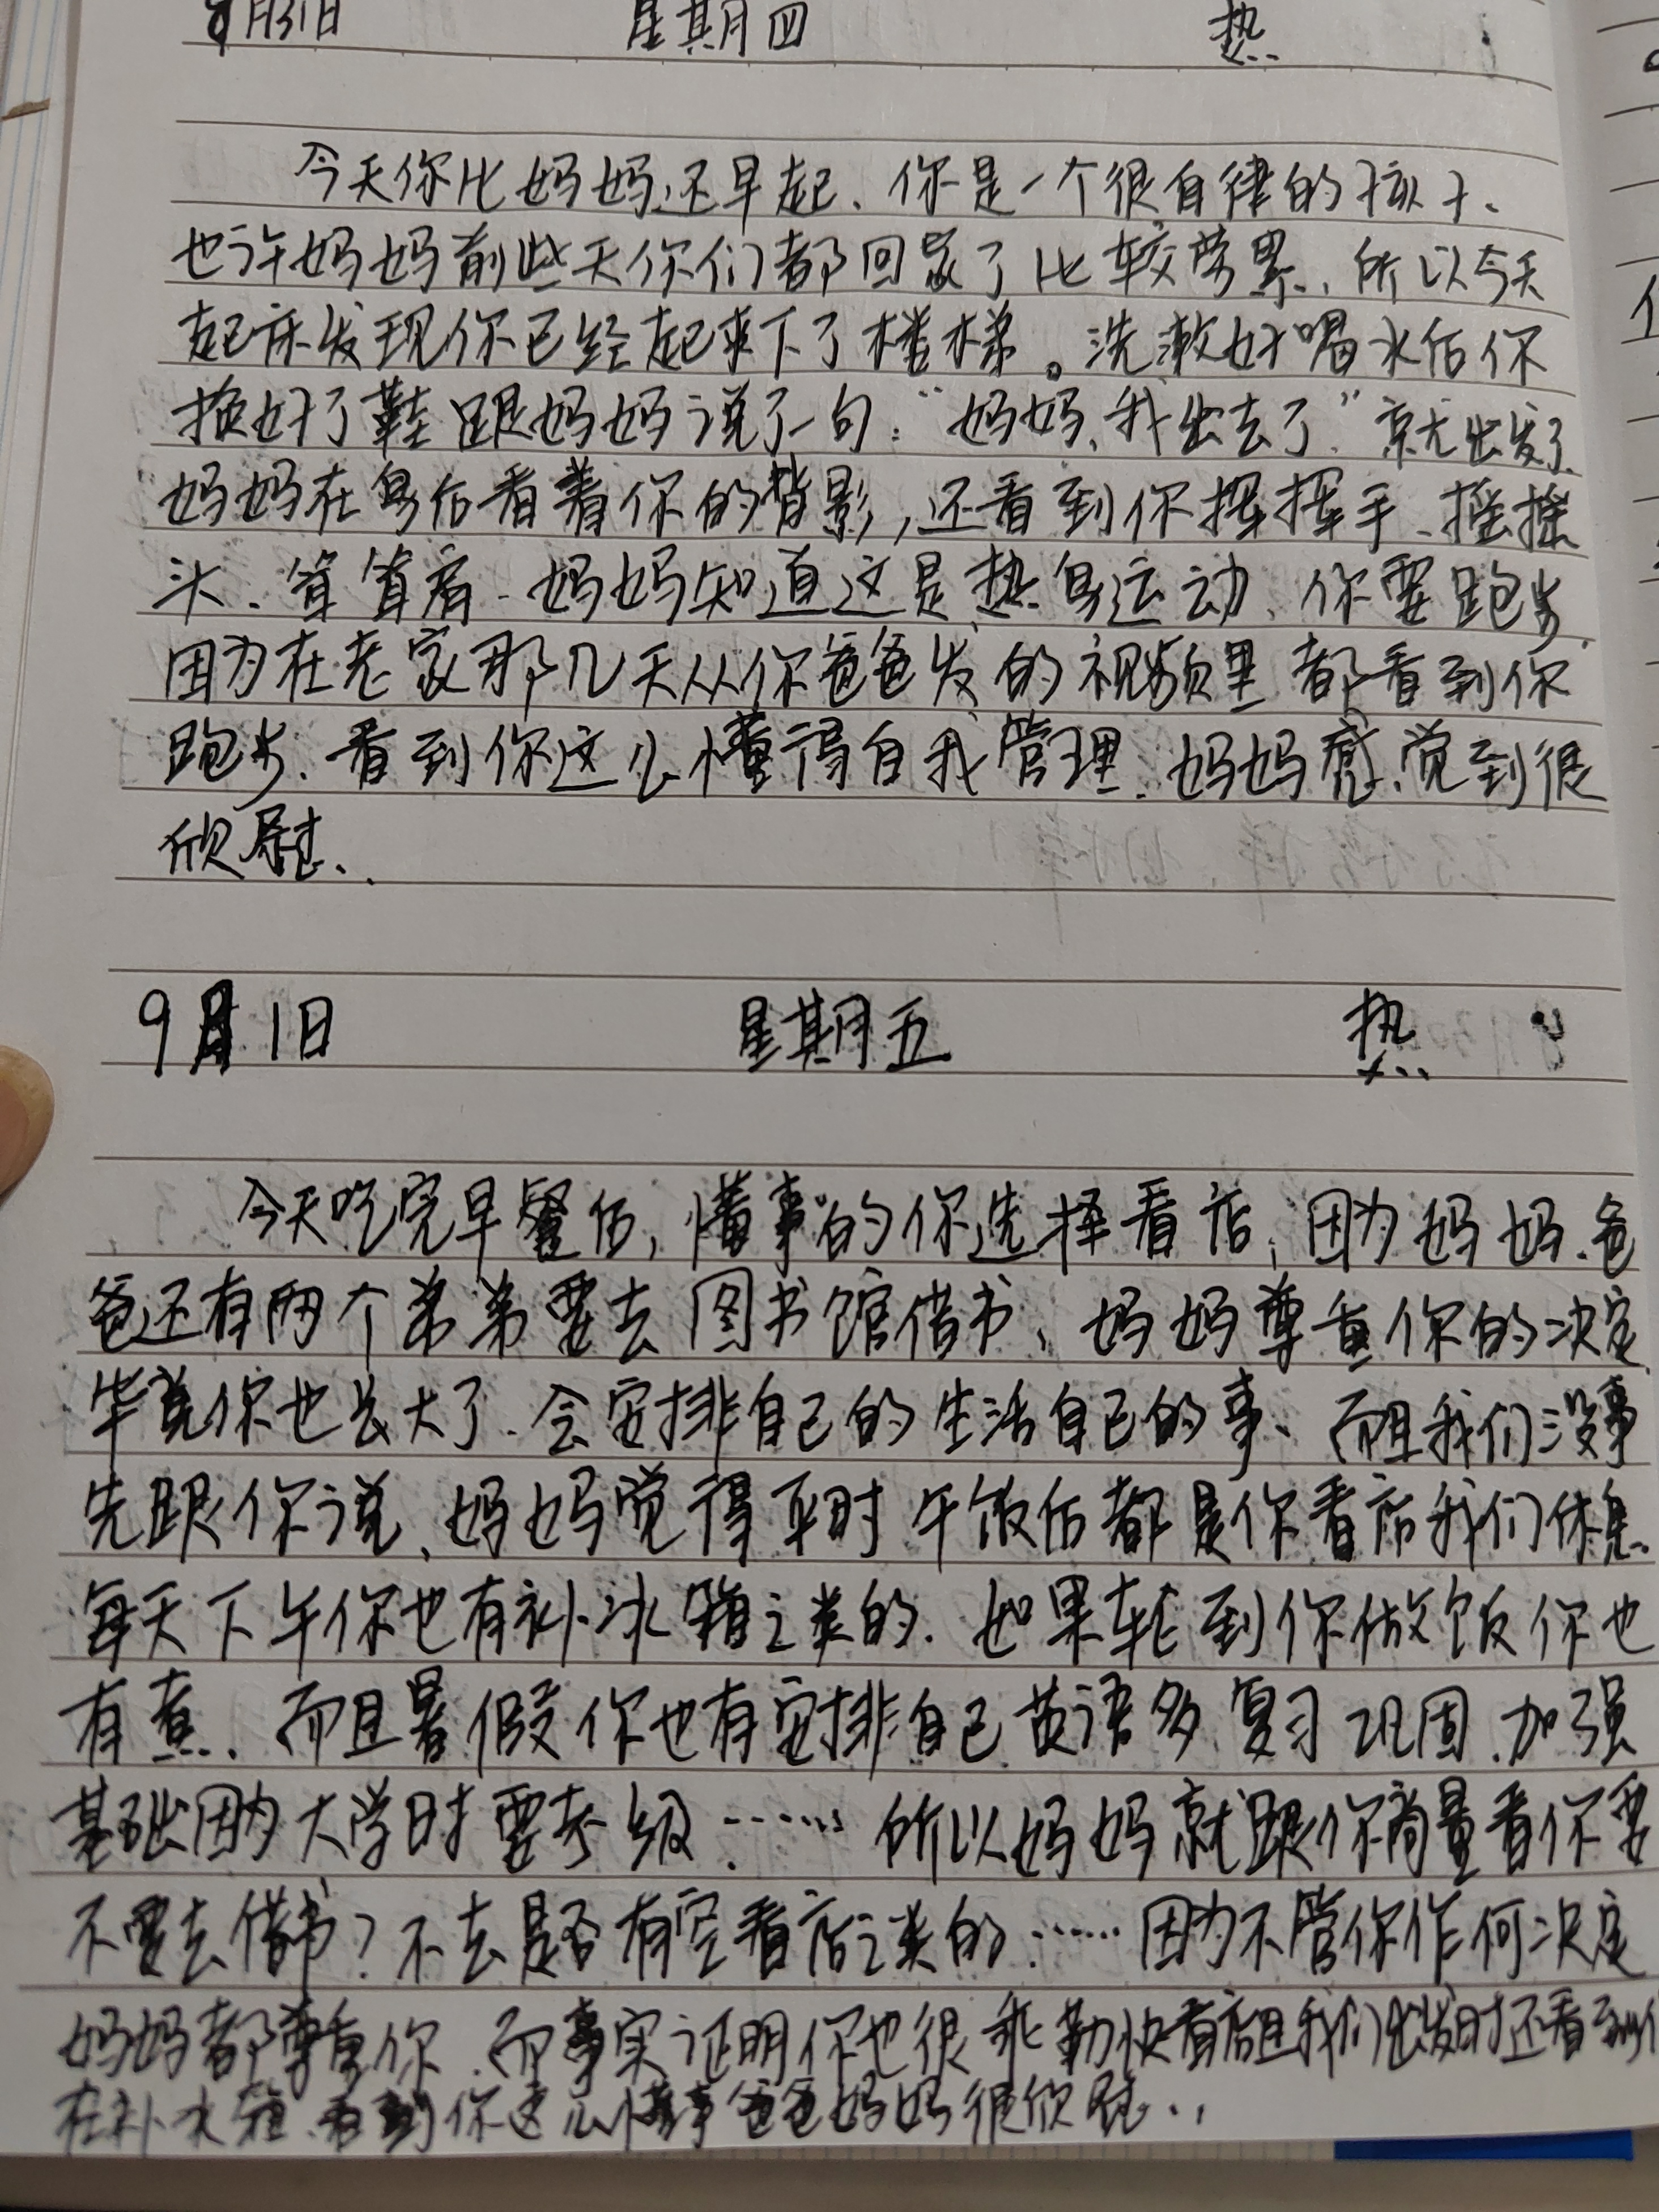 8月31日 星期四 热
今天你比妈妈还早起、你是一个很自律的孩子、
也许妈妈前些天你们都回家了比较劳累、所以今天
起床发现你已经起来下了楼梯。洗漱好喝水后你
换好了鞋跟妈妈说了一句:“妈妈、我出去了”就出发了、
妈妈在身后看着你的背影,还看到你挥挥手、摇摇
头、耸耸肩、妈妈知道这是热身运动、你要跑步、
因为在老家那几天从你爸爸发的视频里都看到你
跑步、看到你这么懂得自我管理、妈妈感觉到很
欣慰、.
9月1日 星期五 热
今天吃完早餐后,懂事的你选择看店,因为妈妈、爸
爸还有两个弟弟要去图书馆借书、妈妈尊重你的决定、
毕竟你也长大了、会安排自己的生活自己的事、而且我们没事
先跟你说、妈妈觉得平时午饭后都是你看店我们休息、
每天下午你也有补冰箱之类的、如果轮到你做饭你也
有煮、而且暑假你也有安排自己英语多复习巩固、加强
基础因为大学时要考级……所以妈妈就跟你商量看你要
不要去借书?不去是否有空看店之类的……因为不管你作何决定
妈妈都尊重你、而事实证明你也很乖勤快看店且我们出发时还看到你
在补水箱、看到你这么懂事爸爸妈妈很欣慰..